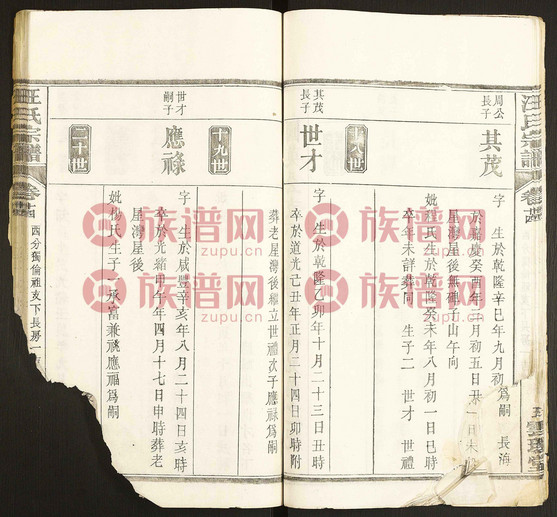 汪氏宗譜
卷
周公
長子
其茂
字 生於乾隆辛巳年九月初 爲嗣 長海
於嘉慶癸酉年三月初五日
星灣星後無碑子山午向
妣程氏生於乾隆癸未年八月初一日巳時
卒年未詳葬同 生子二 世才 世禮
十八世
其茂
長子
世才
字 生於乾隆乙卯年十月二十三日丑時
卒於道光己丑年正月二十四日卯時附
葬老星灣後繼立世禮次子應祿爲嗣
十九世
世才
嗣子
應祿
字 生於咸豐辛亥年八月二十四日亥時
卒於光緒甲午年四月十七日申時葬老
星灣星後
妣楊氏生子 承富兼祧應福爲嗣
二十世
汪氏宗譜
卷
四分獨倫祖支下長房一
族谱网
zupu.cn
族谱网
zupu.cn
族谱网
zupu.cn
族谱网
zupu.cn